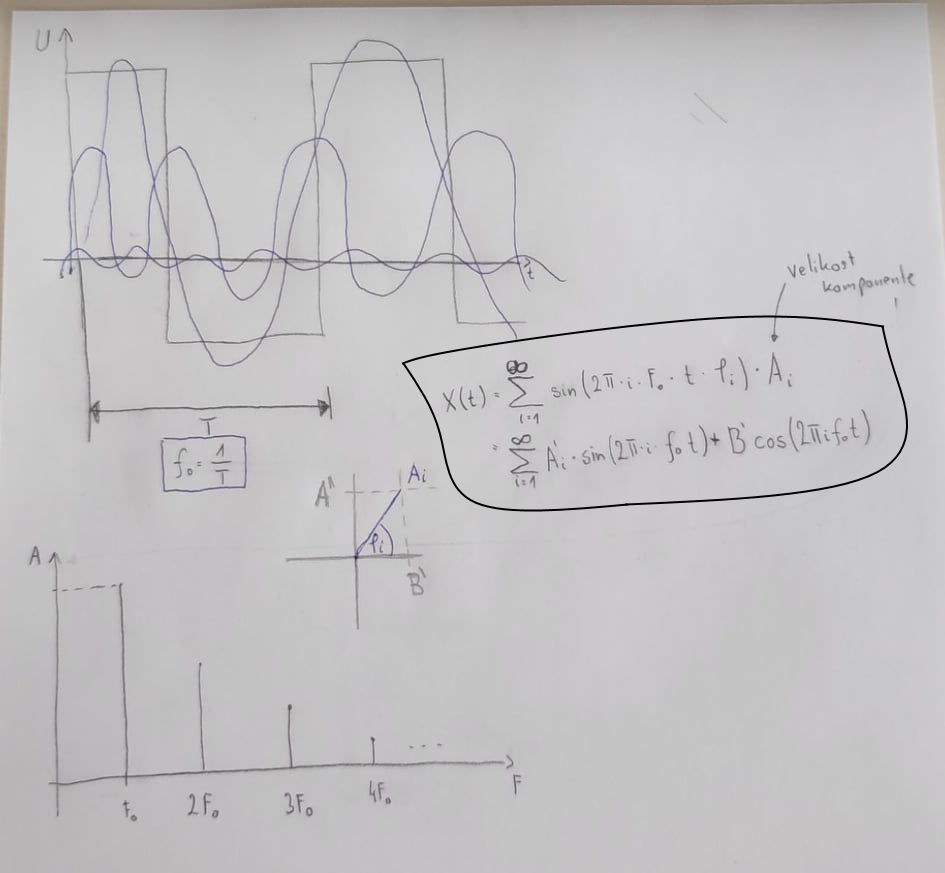 U
t
velikost
komponente
X(t) = ∞∑i=1 sin(2π·i·F₀·t·φi)·Ai
= ∞∑i=1 A'i·sin(2π·i·f₀t)+B'cos(2πif₀t)
T
f₀=1/T
A'
Ai
φi
B'
A
...
F₀ 2F₀ 3F₀ 4F₀ F